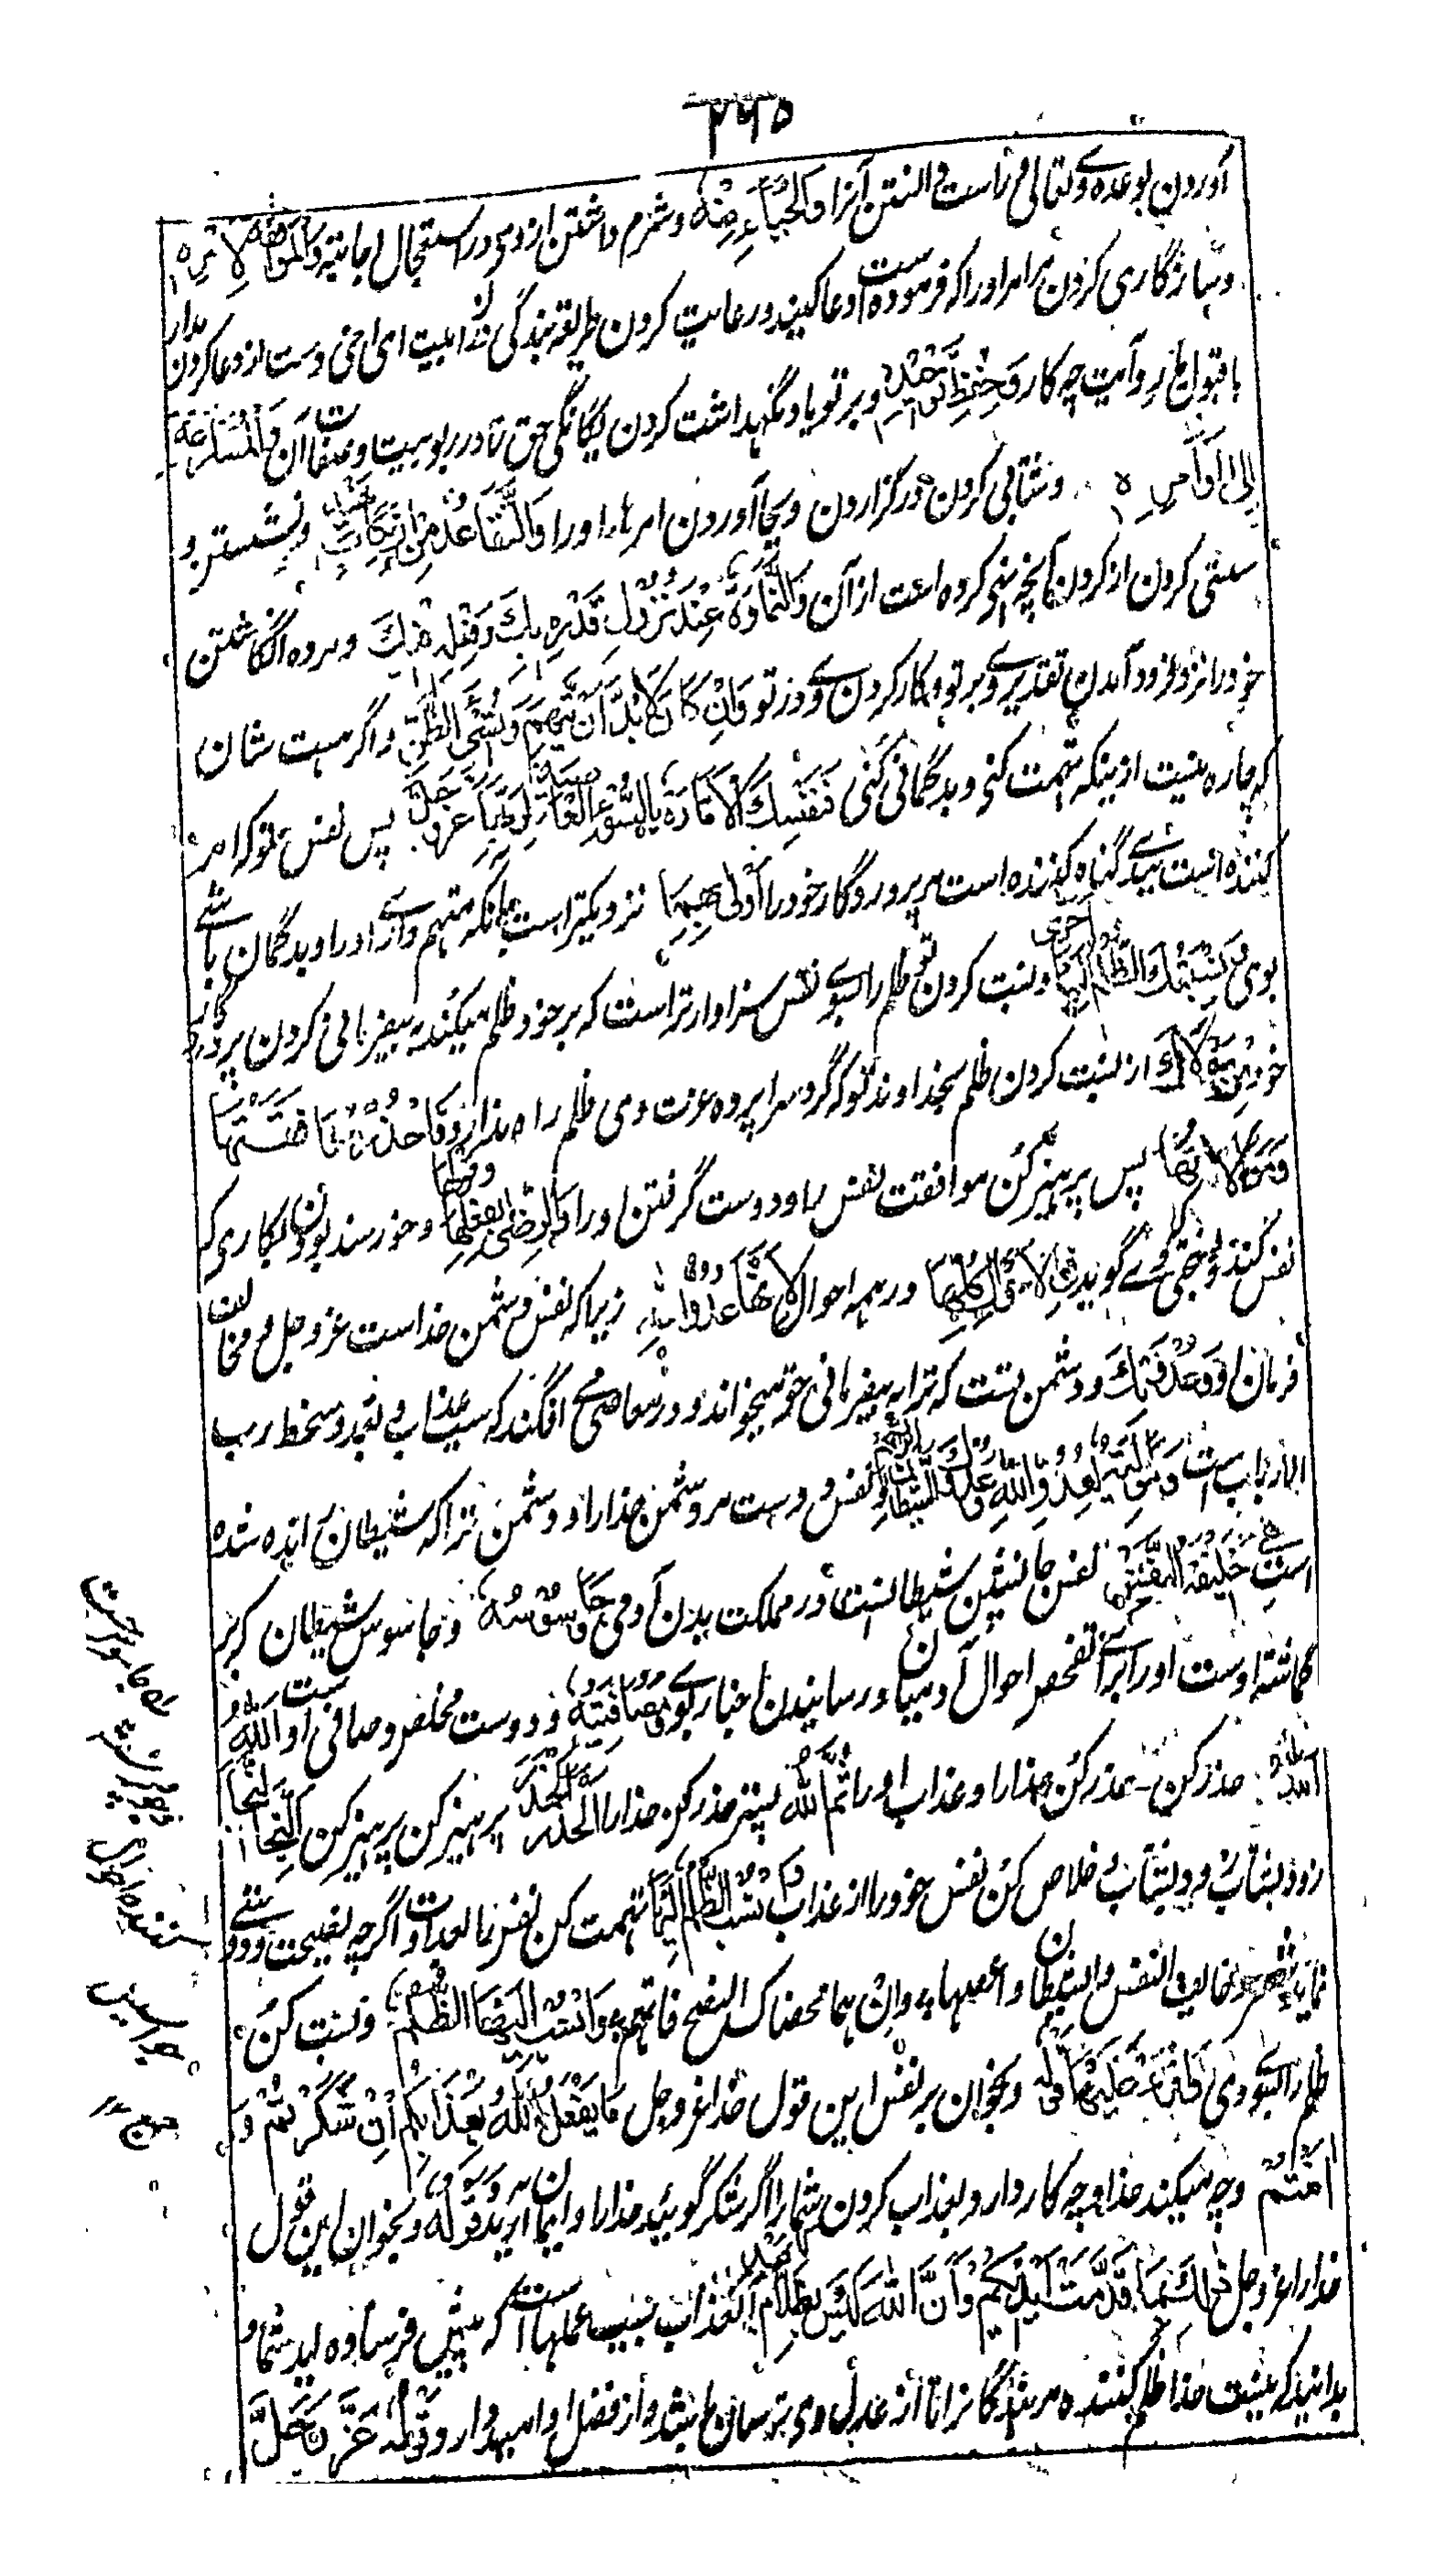 ۲۶۵
آوردن بوعده وے تعالی و راست دانستن آنرا وَالْحَيَاءِ مِنْهُ و شرم داشتن از وی در استعجال اجابت وَالْمُوَافَقَةِ لِأَمْرِهِ
و سازگاری کردن مر امر او را که فرموده است دعا کنید و رعایت کردن طریقه بندگی ای اخی دست از دعا کردن مدار
با قبول و رد آنت چه کار وَحِفْظِ تَوْحِيدِهِ و بر تو باد نگهداشت کردن یگانگی حق تا در ربوبیت و صفات آن وَالْمُسَارَعَةِ
إِلَى أَوَامِرِهِ و شتابی کردن در گزاردن و بجا آوردن امرهاے او را وَالتَّقَاعُدِ عَنِ ارْتِكَابِ نَهْيِهِ و نشستن و
سستی کردن از کردن آنچه نهی کرده است از آن وَالتَّمَاوُتِ عِنْدَ نُزُولِ قَدَرِهِ بِكَ وَفِعْلِهِ فِيكَ و مرده انگاشتن
خود را نزد فرود آمدن تقدیر وے بر تو و کار کردن وے در تو وَإِنْ كَانَ لَا بُدَّ أَنْ تَتَّهِمَ وَتُسِيءَ الظَّنَّ و اگر هست شان
که چاره نیست ازینکه تهمت کنی و بدگمانی کنی فَنَفْسُكَ الْأَمَّارَةُ بِالسُّوءِ الْعَاصِيَةُ لِرَبِّهَا عَزَّ وَجَلَّ پس نفس تو که امر
کننده است به بدی گناه کننده است مر پروردگار خود را أَوْلَى بِهِمَا نزدیکتر است بانکه متهم داری او را و بدگمان باشے
بوی وَنِسْبَتُكَ الظُّلْمَ إِلَيْهَا أَحْرَى و نسبت کردن تو ظلم را بسوی نفس سزاوارتر است که بر خود ظلم میکند به بیفرمانی کردن پروردگار
خود مِنْ مَوْلَاكَ از نسبت کردن ظلم بخداوند تو که گرد سراپرده عزت وی ظلم راه ندارد فَاحْذَرْ مُوَافَقَتَهَا
وَمُوَالَاتَهَا پس پرهیز کن موافقت نفس را و دوست گرفتن او را وَالرِّضَى بِفِعْلِهَا وَقَوْلِهَا و خورسند بودن بکاری که
نفس کند و سخنی که وے گوید فِي الْأَحْوَالِ كُلِّهَا در همه احوال لِأَنَّهَا عَدُوَّةُ اللَّهِ زیرا که نفس دشمن خداست عز و جل و مخالف
فرمان او وَعَدُوَّتُكَ و دشمن تست که ترا به بیفرمانی حق میخواند و در معاصی می افگند که سبب عذاب و بعد و سخط رب
الارباب است وَمُوَالِيَةٌ لِعَدُوِّ اللَّهِ وَعَدُوِّكَ الشَّيْطَانِ الرَّجِيمِ و نفس دوست مر دشمن خدا را و دشمن ترا که شیطان رانده شده
است هِيَ خَلِيفَتُهُ النَّفْسُ نفس جانشین شیطانست در مملکت بدن آدمی وَجَاسُوسُهُ و جاسوس شیطان که بر
گماشته اوست او را برای تفحص احوال آدمیان و رسانیدن اخبار بوی وَمُصَافِيَتُهُ و دوست مخلص و صافی اوست اللَّهَ
اللَّهَ حذر کن حذر کن خدا را و عذاب او را ثُمَّ اللَّهَ پستر حذر کن خدا را الْحَذَرَ الْحَذَرَ پرهیز کن پرهیز کن النَّجَا النَّجَا
زود بشتاب و بشتاب خلاص کن نفس خود را از عذاب وَانْسُبِ الظُّلْمَ إِلَيْهَا تهمت کن نفس را بعداوت اگرچه نصیحت و دوستے
نماید شعر و خالف النفس والشیطان واعصهما + وان هما محضاک النصح فاتهم + وَانْسُبْ إِلَيْهَا الظُّلْمَ و نسبت کن
ظلم را بسوی وی وَاقْرَأْ عَلَيْهَا قَوْلَهُ و بخوان بر نفس این قول خدا عز و جل مَا يَفْعَلُ اللَّهُ بِعَذَابِكُمْ إِنْ شَكَرْتُمْ وَ
آمَنْتُمْ و چه میکند خدا و چه کار دارد بعذاب کردن شما را اگر شکر گوئید خدا را و ایمان آرید وَقَوْلَهُ و بخوان این قول
خدا را عز و جل ذَلِكَ بِمَا قَدَّمَتْ أَيْدِيكُمْ وَأَنَّ اللَّهَ لَيْسَ بِظَلَّامٍ لِلْعَبِيدِ این عذاب بسبب عملهاست که پیش فرستاده اید شما و
بدانید که نیست خدا ظلم کننده مر بندگانرا تا از عدل وی ترسان باشد و از فضل او امیدوار وَقَوْلَهُ عَزَّ وَجَلَّ